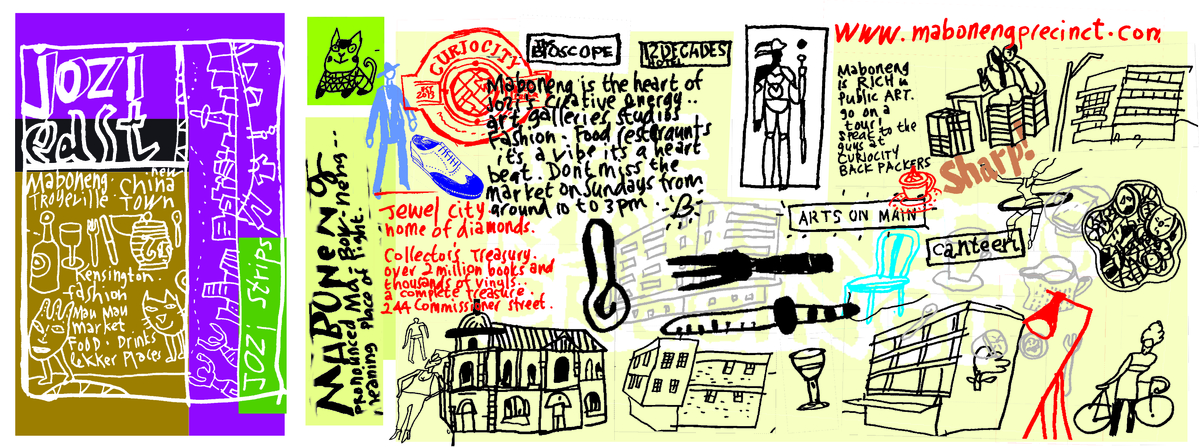 jozi
east
Maboneng
Troyeville
new
China
Town
Kensington
fashion
Mau Mau
market
Food. Drinks
Lekker Places
JOZI Strips
MABONENG
pronounced Ma-Boy-neng---
meaning place of light.
CURIOCITY
THE
BIOSCOPE
12 DECADES
HOTEL
Maboneng is the heart of
Jozi's creative energy..
art galleries studios
Fashion. Food restaraunts
it's a vibe it's a heart
beat. Dont miss the
market on Sundays from
around 10 to 3 pm.
Jewel city
home of diamonds.
Collectors Treasury.
over 2 million books and
thousands of vinyls..
a complete treasure.
244 Commissioner street.
www.mabonengprecinct.com
Maboneng
is RICH in
Public ART.
go on a
tour!
Speak to the
guys at
CURIOCITY
BACK PACKERS
Sharp!
ARTS ON MAIN
canteen